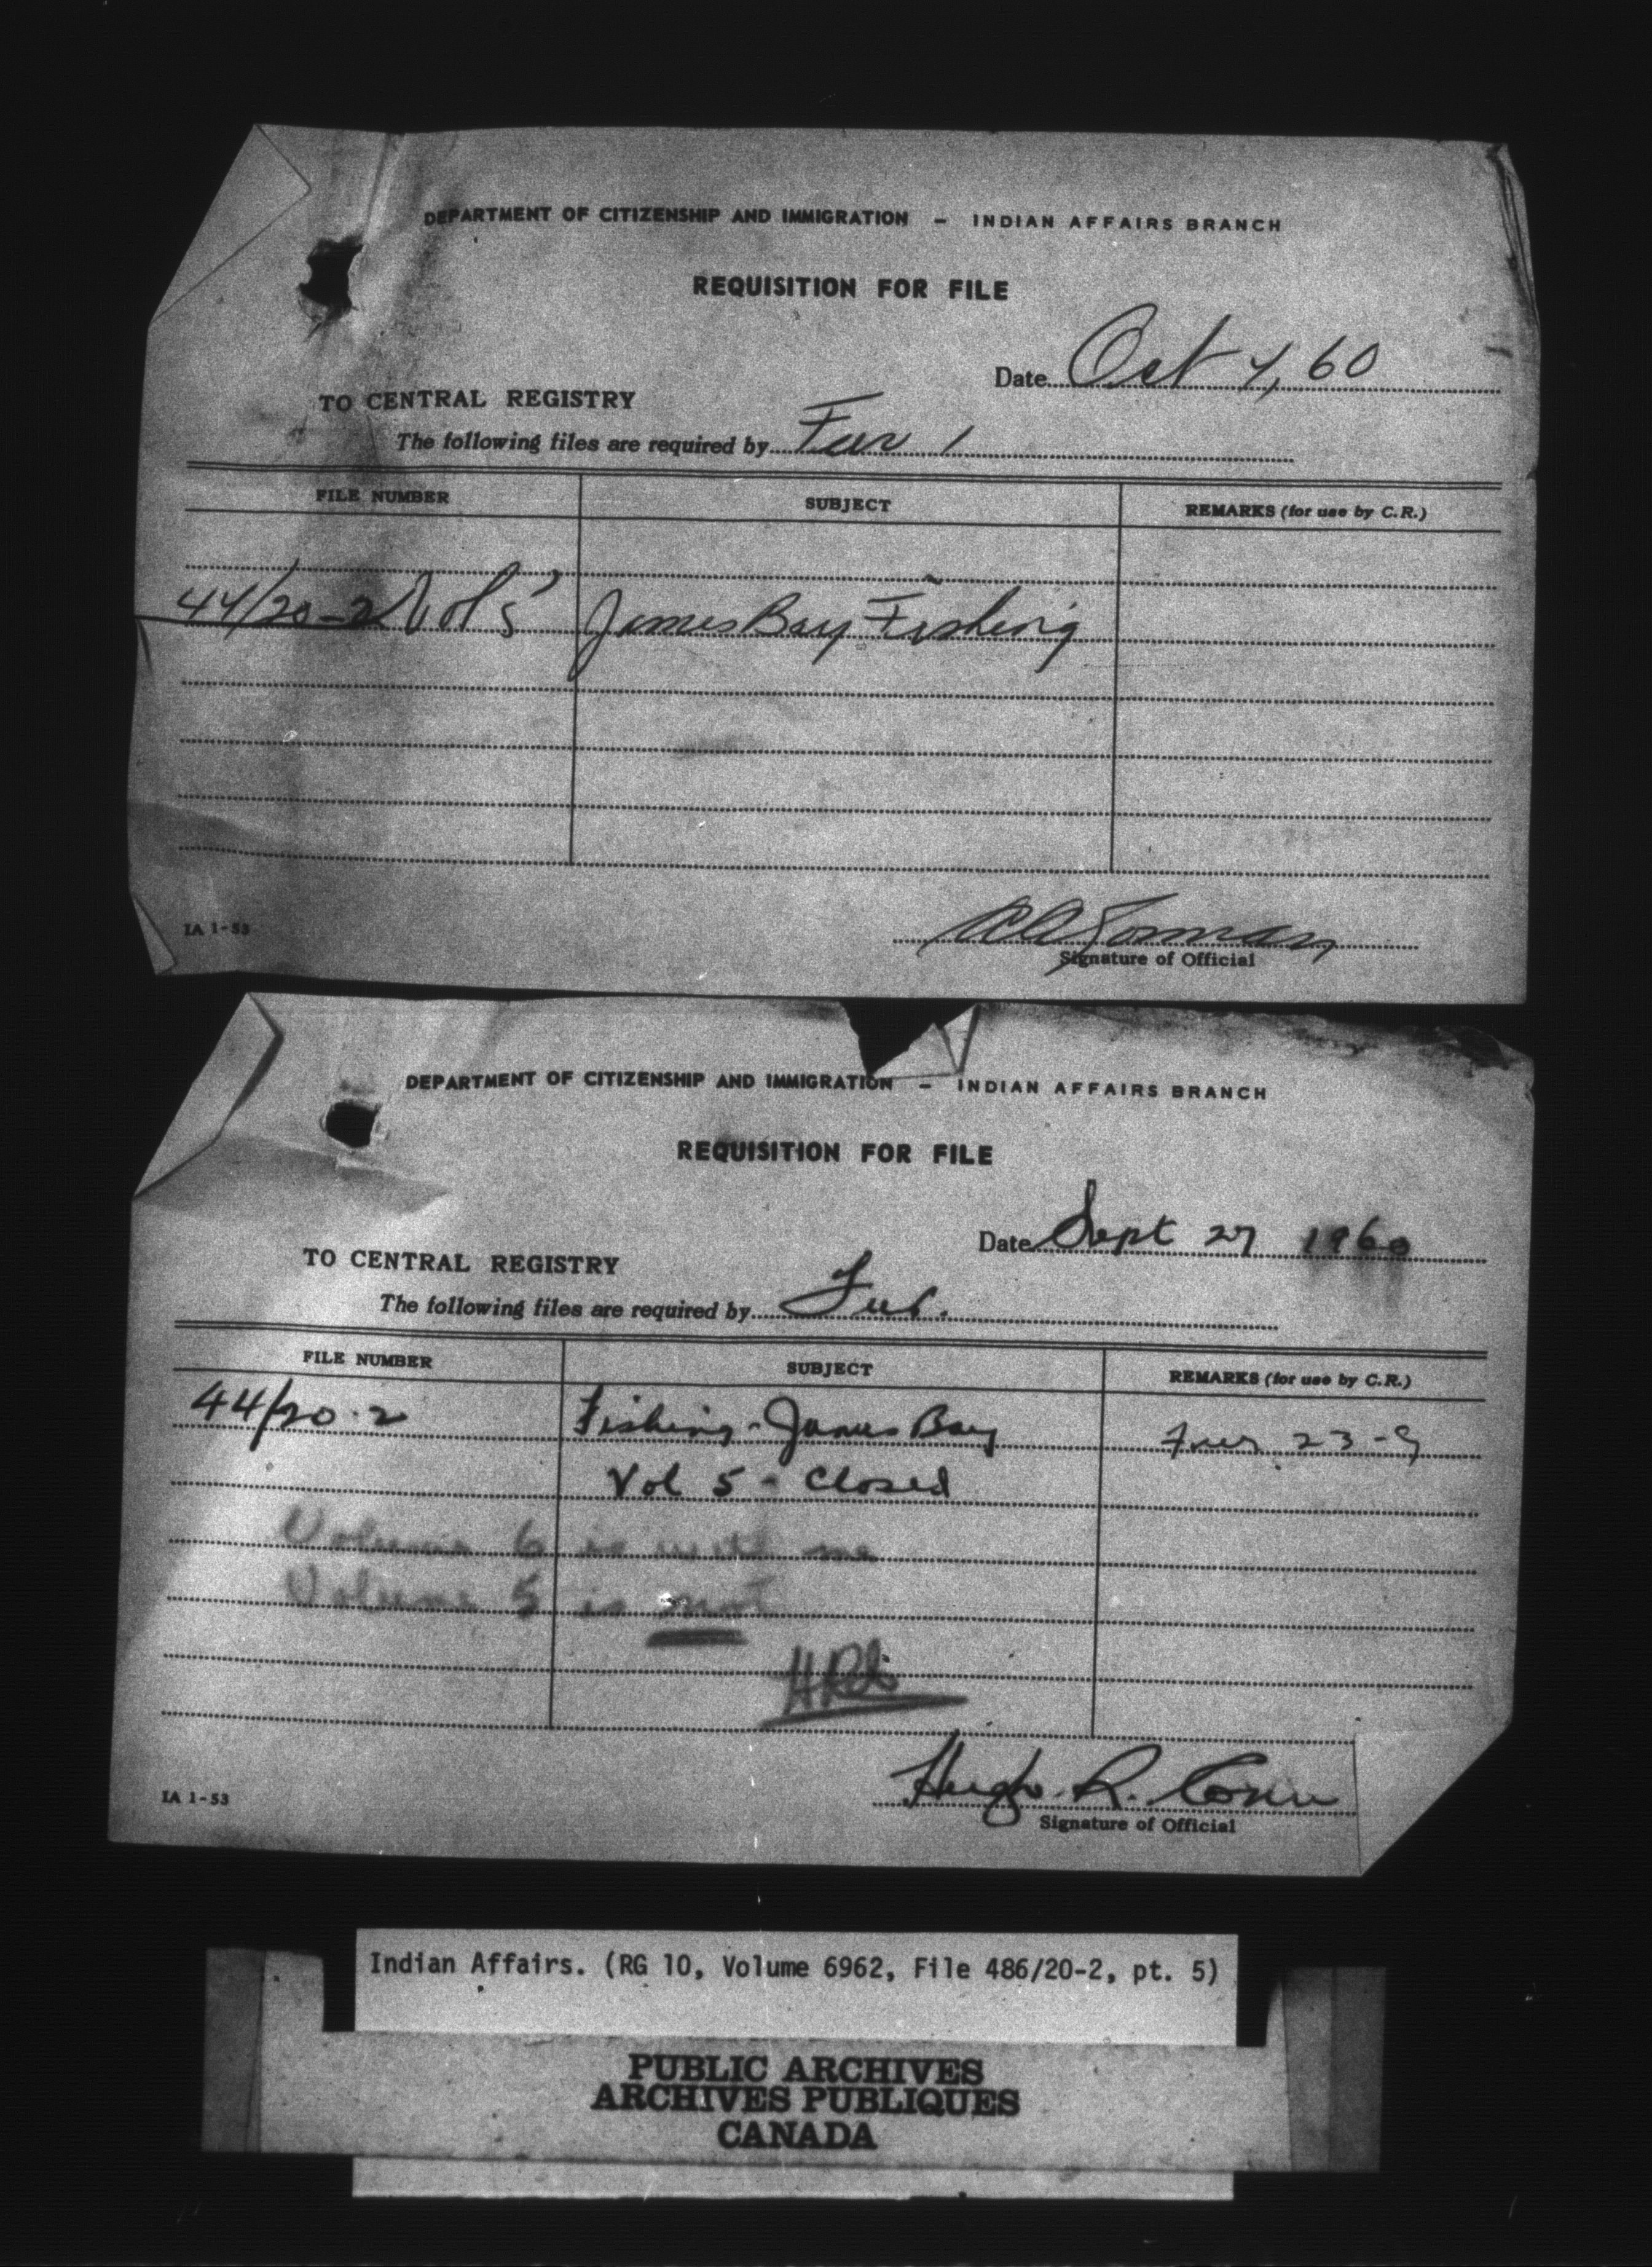 DEPARTMENT OF CITIZENSHIP AND IMMIGRATION – INDIAN AFFAIRS BRANCH
REQUISITION FOR FILE
Date Oct 7, 60
TO CENTRAL REGISTRY
The following files are required by Fur 1
FILE NUMBER SUBJECT REMARKS (for use by C.R.)
44/20-2 Vol 5 James Bay Fishing
IA 1-53
Signature of Official
DEPARTMENT OF CITIZENSHIP AND IMMIGRATION – INDIAN AFFAIRS BRANCH
REQUISITION FOR FILE
Date Sept 27 1960
TO CENTRAL REGISTRY
The following files are required by Fur.
FILE NUMBER SUBJECT REMARKS (for use by C.R.)
44/20-2 Fishing - James Bay Fur 23-9
Vol 5 - Closed
Volume 6 is with me
Volume 5 is not
Hugh R. Conn
IA 1-53
Signature of Official
Indian Affairs. (RG 10, Volume 6962, File 486/20-2, pt. 5)
PUBLIC ARCHIVES
ARCHIVES PUBLIQUES
CANADA